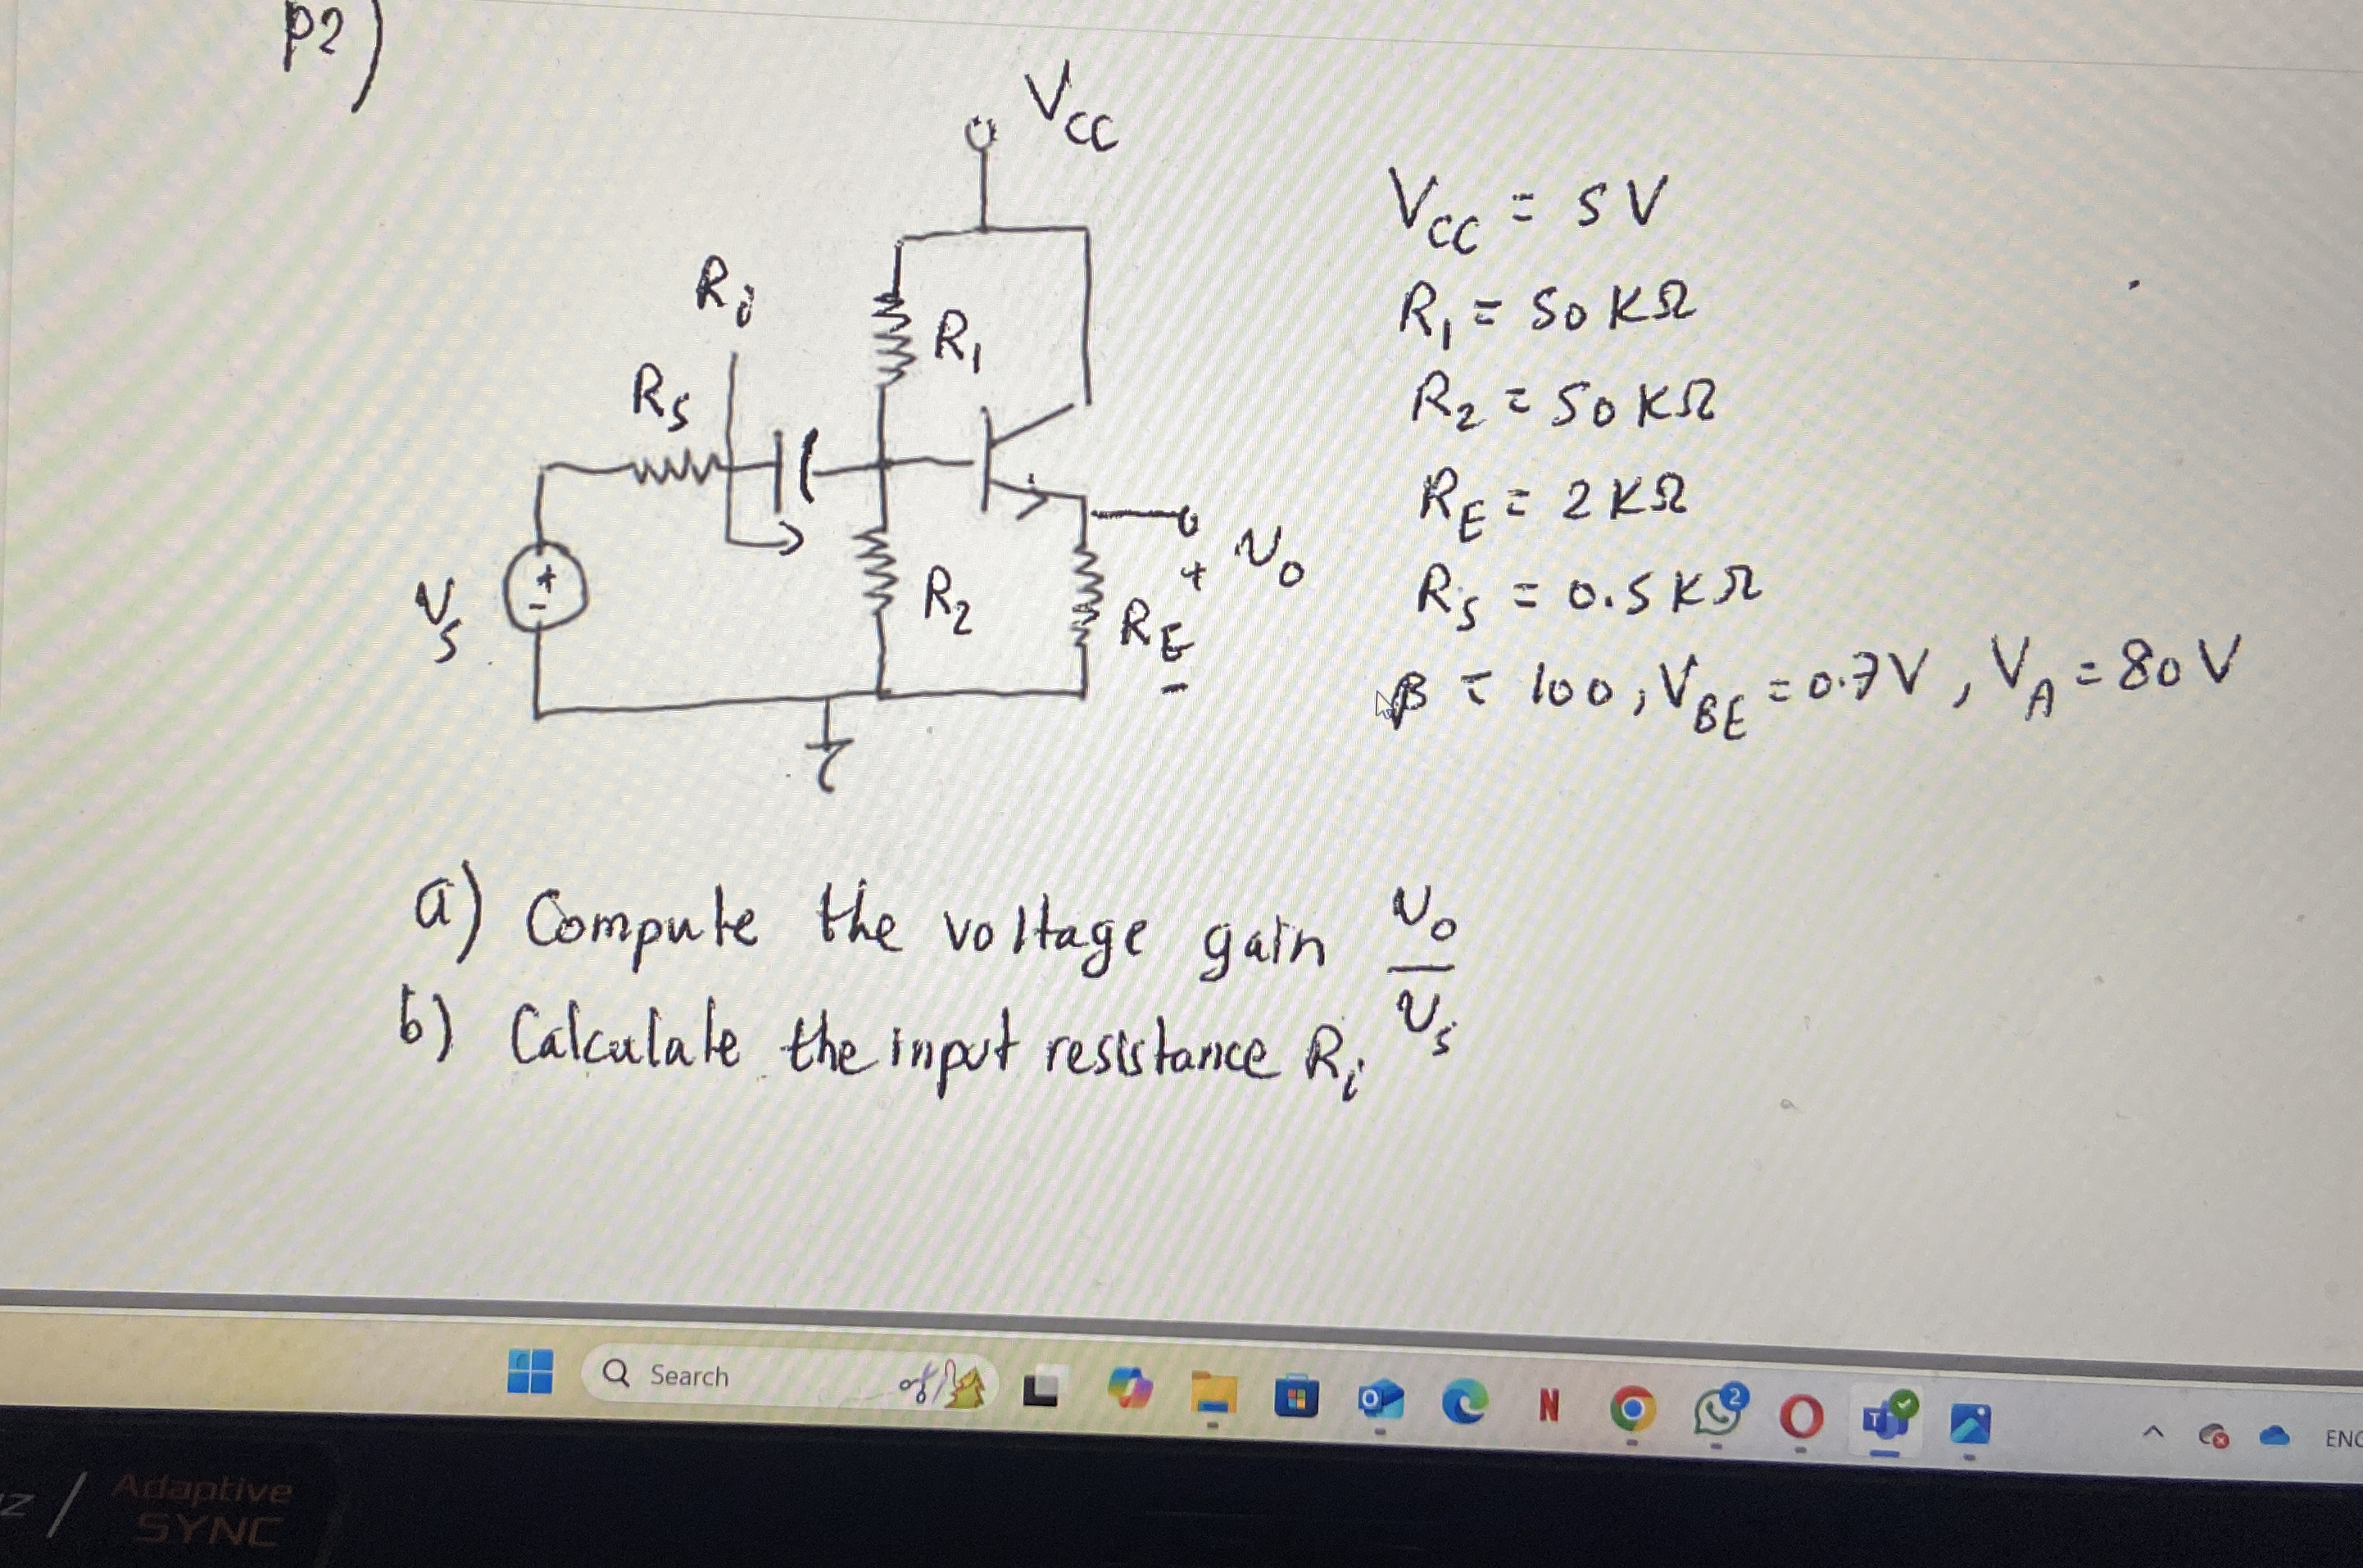 P2)
VCC
Ri
R1
RS
R2
RE
vs
+
-
+ vo
-
VCC = 5V
R1 = 50 KΩ
R2 = 50 KΩ
RE = 2 KΩ
RS = 0.5 KΩ
β = 100, VBE = 0.7V, VA = 80V
a) Compute the voltage gain vo/vs
b) Calculate the input resistance Ri
Search
2
ENG
Adaptive
SYNC